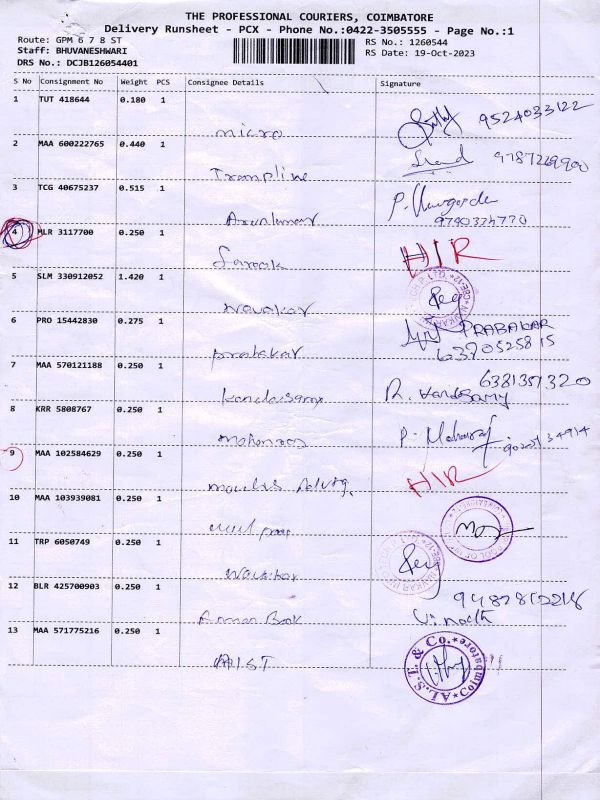 THE PROFESSIONAL COURIERS, COIMBATORE
Delivery Runsheet - PCX - Phone No.:0422-3505555 - Page No.:1
Route: GPM 6 7 8 ST RS No.: 1260544
Staff: BHUVANESHWARI RS Date: 19-Oct-2023
DRS No.: DCJB126054401
S No Consignment No Weight PCS Consignee Details Signature
1 TUT 418644 0.180 1
micro 9524033122
2 MAA 600222765 0.440 1
Trampline
3 TCG 40675237 0.515 1
Arunkumar
4 MLR 3117700 0.250 1 HIR
Farook
5 SLM 330912052 1.420 1
Navakar
6 PRO 15442830 0.275 1 PRABAKAR
prabakar 6370525815
7 MAA 570121188 0.250 1 6381351320
kandasamy R. Kandasamy
8 KRR 5808767 0.250 1
Mohanraj
9 MAA 102584629 0.250 1 HIR
10 MAA 103939081 0.250 1
11 TRP 6050749 0.250 1
Navakar
12 BLR 425700903 0.250 1
Annan Book Vinoth
13 MAA 571775216 0.250 1
AIST